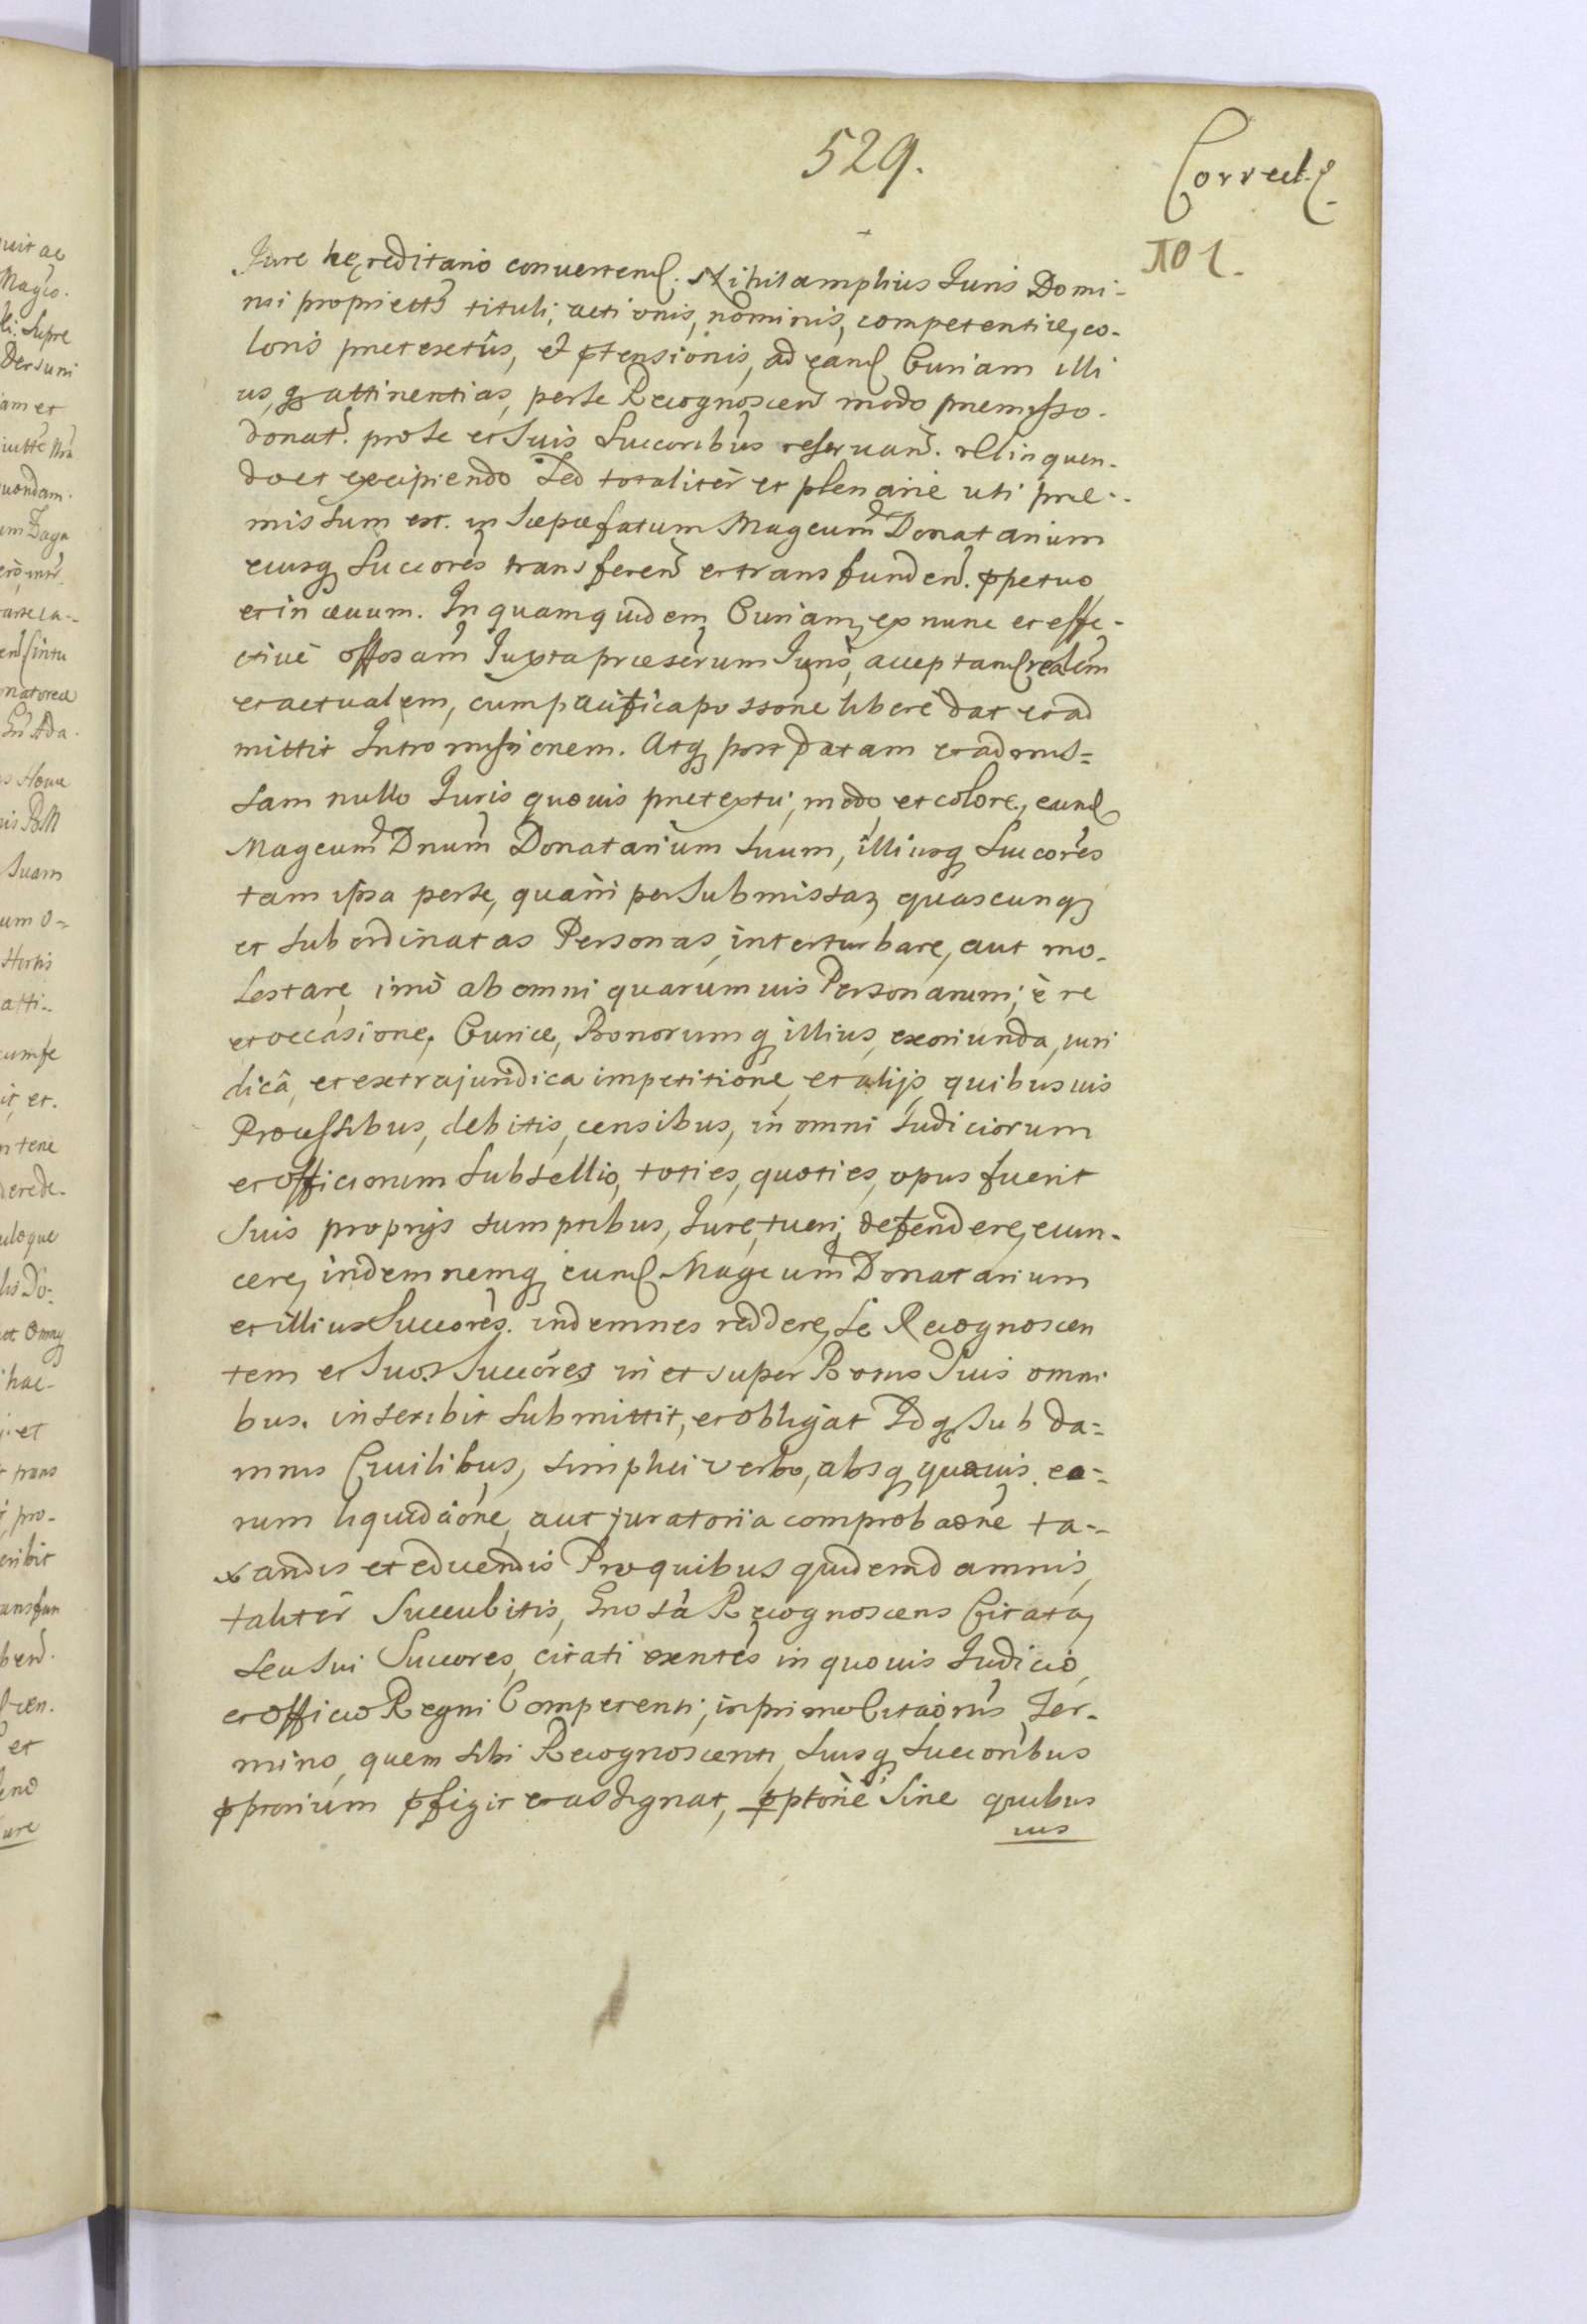 529.
Correct
701.
Jure hęreditario conuertend. Nihil amplius Juris Domi-
nij propriettis tituli, actionis, nominis, competentiæ, co-
loris prætextûs, et ptensionis, ad eand Curiam illi
usq attinentias, per se Recognoscen modo præmisso.
donat. pro se et Suis Succoribus reseruan. relinquen-
do et excipiendo Sed totaliter et plenarie uti præ-
missum est. in Sæpæfatum Magcum Donatarium
eiusq Succores transferen et transfunden. ppetuo
et in æuum. In quamquidem Curiam, ex nunc et effe-
ctiue offosam Juxta præsèrum Juris, acceptam realem
et actualem, cum pacifica possone libere dat et ad
mittit Intromissionem. Atq post datam et admis-
sam nullo Juris quouis prætextu, modo et colore, eund
Magcum Dnum Donatarium Suum, illiusq Succores
tam ipsa per se, quam per Submissas quascunq
et Subordinatas Personas, inturbare, aut mo-
lestare, imò ab omni quarumuis Personarum, è re
et occasione, Curiæ, Bonorumq illius, exoriunda, iuri
dicâ, et extrajuridica impetitione, et alijs quibusuis
Processibus, debitis, censibus, in omni Judiciorum
et Officiorum Subsellio, toties, quoties, opus fuerit
Suis proprijs sumptibus, Jure tueri, defendere, euin-
cere, indemnemq eund Magcum Donatarium
et illius Succores. indemnes reddere, Se Recognoscen
tem et Suos Succores in et super Bonis Suis omni
bus. inscribit submittit, et obligat Idq Sub da-
mnis Ciuilibus, simplici verbo, absq quauis eo-
rum liquidaone, aut juratoria comprobaone ta-
xandis et educendis Pro quibus quidem damnis,
taliter Succubitis, Gnosa Recognoscens Citata,
Seu Sui Succores, citati exentes in quouis Judicio,
et Officio Regni Competenti, in primo Citaonis Ter-
mino, quem sibi Recognoscenti, Suisq Succoribus
pptorium pfigit et assignat, pptorie Sine quibus
uis